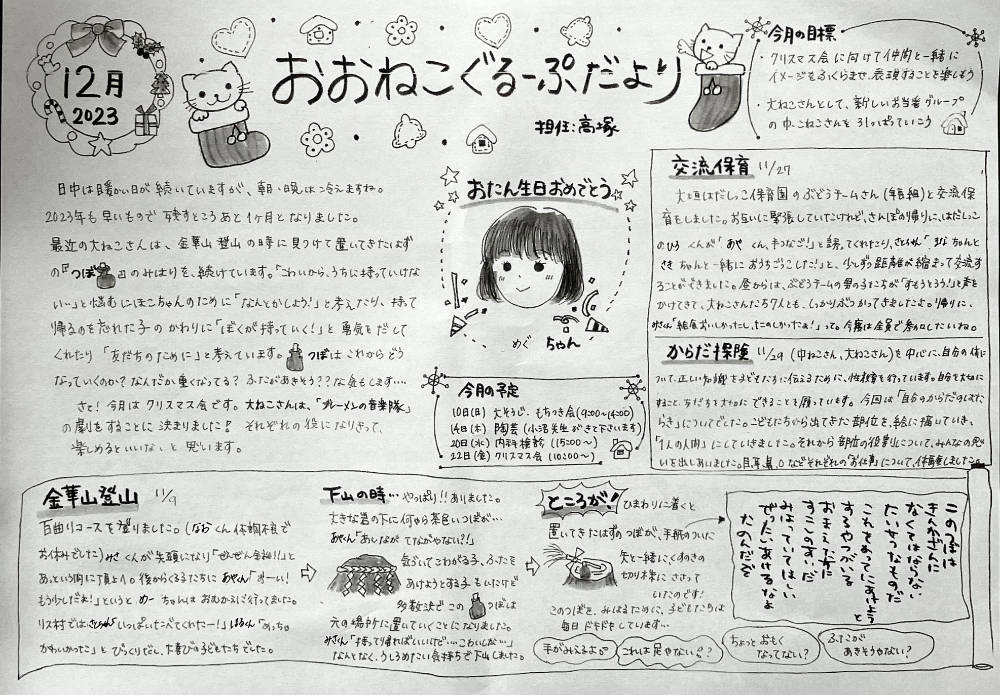 12月
2023
おおねこぐるーぷだより
担任:高塚
今月の目標
・クリスマス会に向けて仲間と一緒に
イメージをふくらませ、表現することを楽しもう
・大ねこさんとして、新しいお当番グループ
の中、こねこさんを引っぱっていこう
日中は暖かい日が続いていますが、朝・晩は冷えますね。
2023年も早いもので残すところあと1ヶ月となりました。
最近の大ねこさんは、金華山登山の時に見つけて置いてきたはず
の『つぼ』のみはりを、続けています。「こわいから、うちに持っていけな
い…」と悩むにほこちゃんのために「なんとかしよう!」と考えたり、持って
帰るのを忘れた子のかわりに「ぼくが持っていく!」と勇気をだして
くれたり「友だちのために」と考えています。つぼはこれからどう
なっていくのか?なんだか重くなってる?ふたがあきそう??な気もします…
さて!今月はクリスマス会です。大ねこさんは、「ブレーメンの音楽隊」
の劇をすることに決まりました!それぞれの役になりきって、
楽しめるといいな、と思います。
おたん生日おめでとう
めぐ ちゃん
今月の予定
10日(日) 大そうじ・もちつき会(9:00~4:00)
14日(木) 陶芸(小沼先生がきて下さいます)
20日(水) 内科検診(15:00~)
22日(金) クリスマス会(10:00~)
交流保育 11/27
大垣はだしっこ保育園のぶどうチームさん(年長組)と交流保
育をしました。お互いに緊張していたけれど、さんぽの帰りに、はだしっこ
のひろくんが「あやくん、手つなご!」と誘ってくれたり、「まなちゃんと
さきちゃんと一緒におうちごっこした!」と、少しずつ距離が縮まって交流す
ることができました。昼からは、ぶどうチームの男の子たちが「すもうとろう!」と声を
かけてきて、大ねこさんたち7人とも、しっかりぶつかってきましたよ。帰りに、
みさ「給食おいしかったし、たのしかったね!」って。今度は全員で参加したいね。
からだ探険 11/29 (中ねこさん、大ねこさん)を中心に、自分の体に
ついて、正しい知識を子どもたちに伝えるために、性教育を行っています。自分を大切に
すること、友だちを大切にできることを願っています。今回は「自分のからだのはた
らき」についてでした。こどもたちから出てきた部位を、絵に描いていき、
「1人の人間」にしていきました。それから部位の役割について、みんなの思
いを出しあいました。目、耳、鼻、口などそれぞれの"お仕事"について、体験しました。
金華山登山 11/9
百曲りコースを登りました。(なおくん体調不良で
お休みでした)みさくんが先頭になり「ぜんぜん余裕!!」と
あっという間に頂上へ。後からくる子たちにあやくん「おーい!
もう少しだよ!」というと、めーちゃんはおむかえに行ってました。
リス村では「いっぱいたべてくれたー!」はるくん「めっちゃ
かわいかった」とびっくりだし、大喜びの子どもたちでした。
下山の時…やっぱり!!ありました。
大きな岩の下に何やら茶色いつぼが…
あやくん「あしながてながやない?!」
気づいてこわがる子、ふたを
あけようとする子もいたけど
多数決でこのつぼは
元の場所に置いていくことになりました。
みさくん「持って帰ればいいじゃ…こわいしな…」
なんとなく、うしろめたい気持ちで下山しました。
ところが! ひまわりに着くと
置いてきたはずのつぼが、手紙のついた
矢と一緒に、くすのきの
切り株にささって
いたのです!
このつぼを、みはるために、子どもたちは
毎日ドキドキしています…
このつぼは
きんかざんに
なくてはならない
たいせつなものだ
これをあってにあけようと
するやつがいる
おまえたちに
すこしのあいだ
みはっていてほしい
ぜったいにあけるなよ
たのんだぞ
手がみえるよ。
これは足やない?
ちょっとおもく
なってない?
ふたが
あきそうやない?